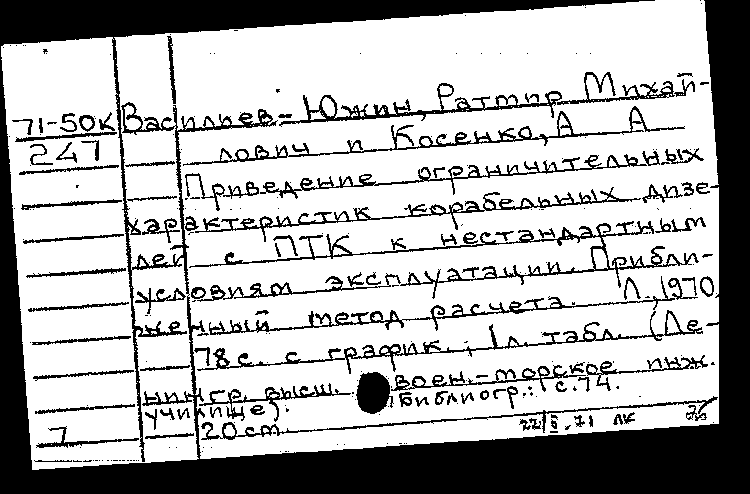 71-50К Васильев-Южин, Ратмир Михай-
247 лович и Косенко, А А
Приведение ограничительных
характеристик корабельных дизе-
лей с ПТК к нестандартным
условиям эксплуатации. Прибли-
женный метод расчета. Л., 1970.
78 с. с график.; 1 л. табл. (Ле-
нингр. высш. воен.-морское инж.
училище). Библиогр.: с. 74.
7 20 см.
22/II.71 ЛК